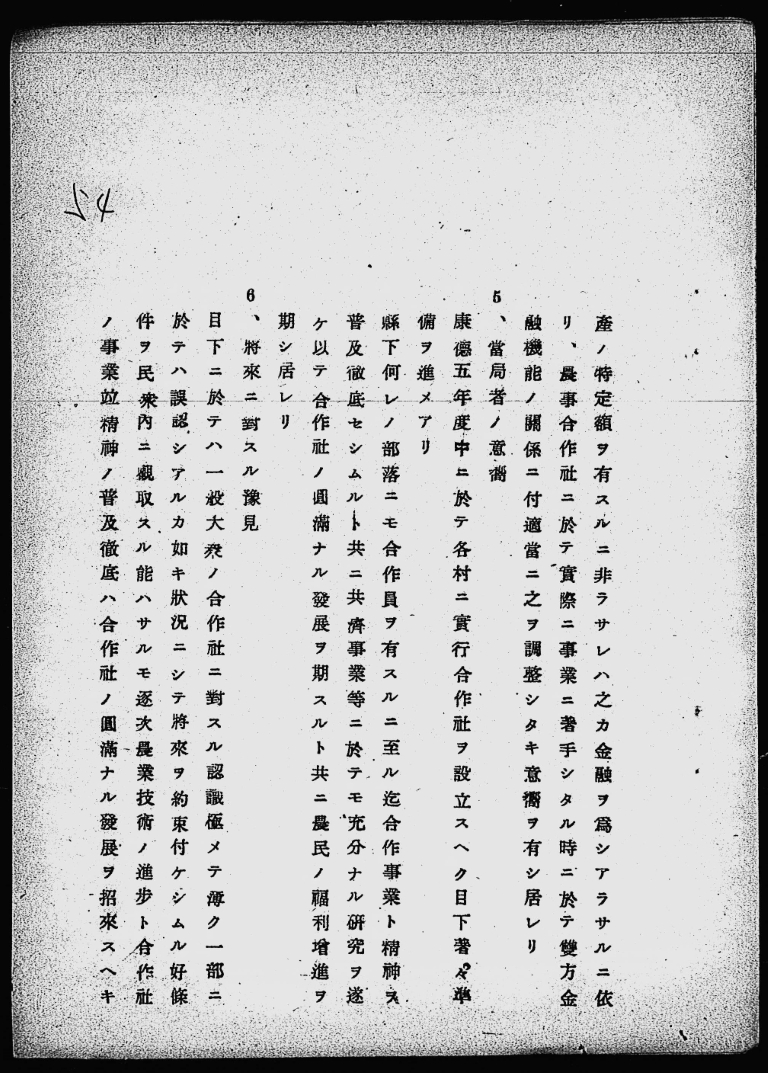 產ノ特定額ヲ有スルニ非ラサレハ之カ金融ヲ爲シアラサルニ依
リ、農事合作社ニ於テ實際ニ事業ニ著手シタル時ニ於テ雙方金
融機能ノ關係ニ付適當ニ之ヲ調整シタキ意嚮ヲ有シ居レリ
5、當局者ノ意嚮
康德五年度中ニ於テ各村ニ實行合作社ヲ設立スヘク目下著々準
備ヲ進メアリ
縣下何レノ部落ニモ合作員ヲ有スルニ至ル迄合作事業ト精神ヲ
普及徹底セシムルト共ニ共濟事業等ニ於テモ充分ナル硏究ヲ遂
ケ以テ合作社ノ圓滿ナル發展ヲ期スルト共ニ農民ノ福利增進ヲ
期シ居レリ
6、將來ニ對スル豫見
目下ニ於テハ一般大衆ノ合作社ニ對スル認識極メテ薄ク一部ニ
於テハ誤認シアルカ如キ狀況ニシテ將來ヲ約束付ケシムル好條
件ヲ民衆內ニ觀取スル能ハサルモ逐次農業技術ノ進步ト合作社
ノ事業竝精神ノ普及徹底ハ合作社ノ圓滿ナル發展ヲ招來スヘキ